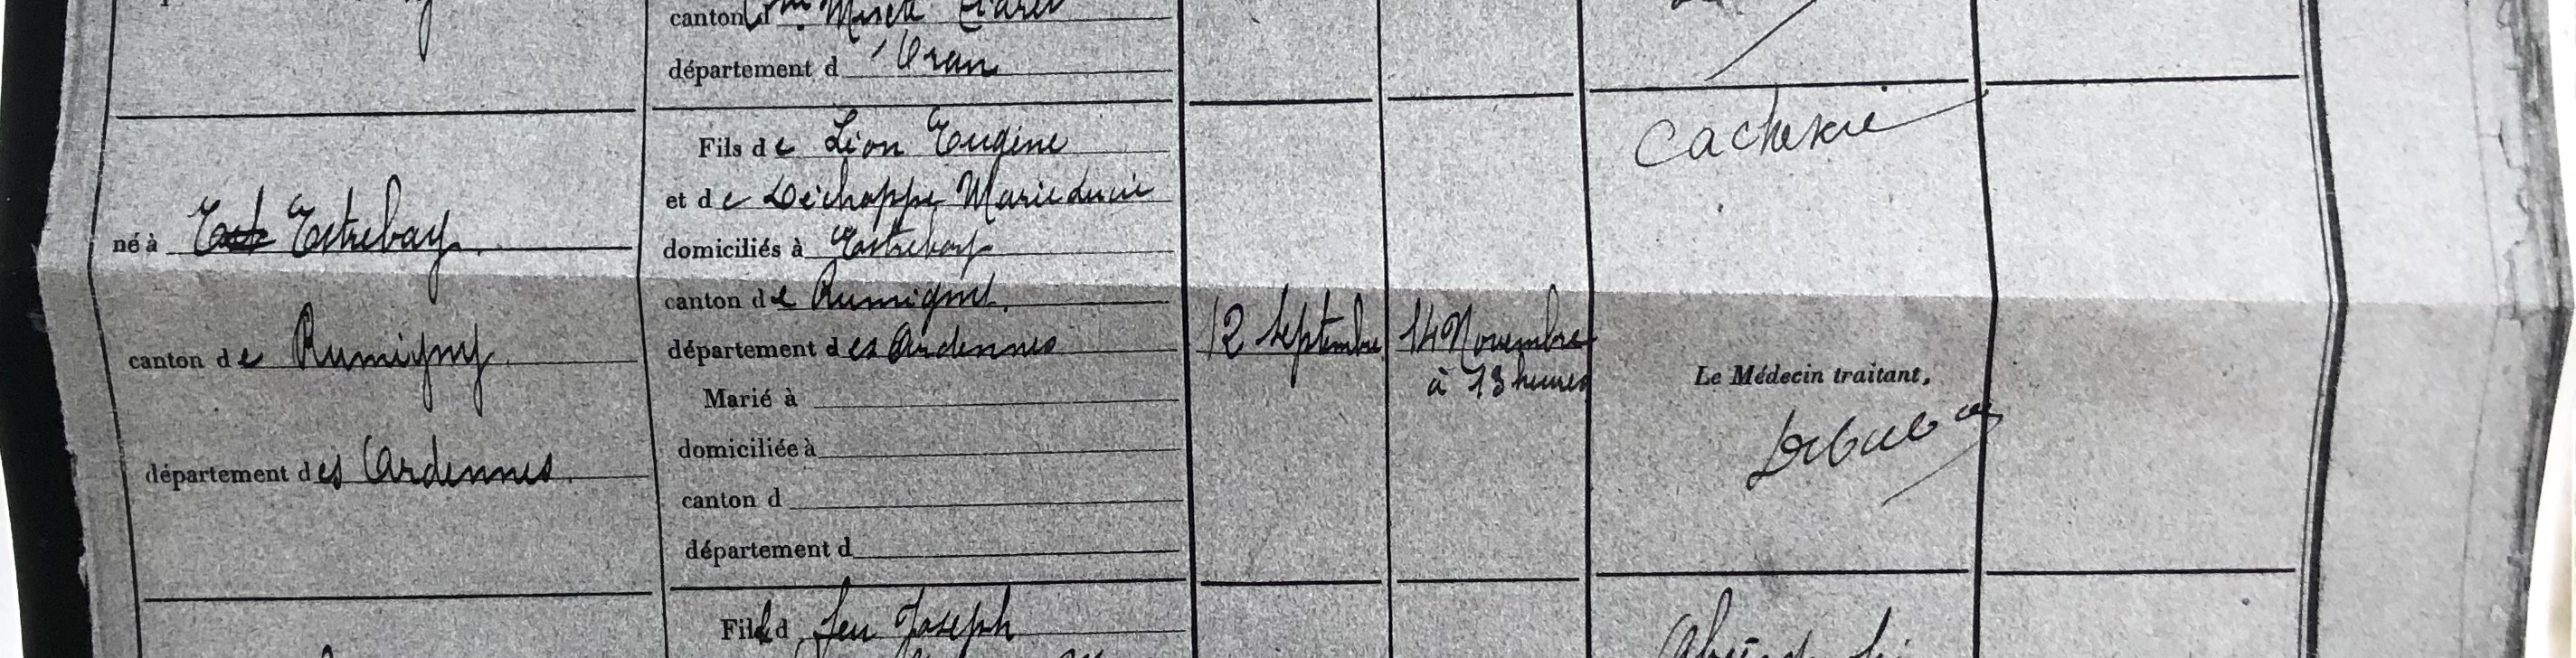 canton
département d'Oran
né à Est Estrebay
canton de Rumigny
département des Ardennes.
Fils de Léon Eugène
et de Déchappe Marie Lucie
domiciliés à Estrebay
canton de Rumigny.
département des Ardennes
Marié à
domiciliée à
canton d
département d
12 Septembre
14 Novembre
à 13 heures
Cachexie
Le Médecin traitant,
Fils d feu Joseph